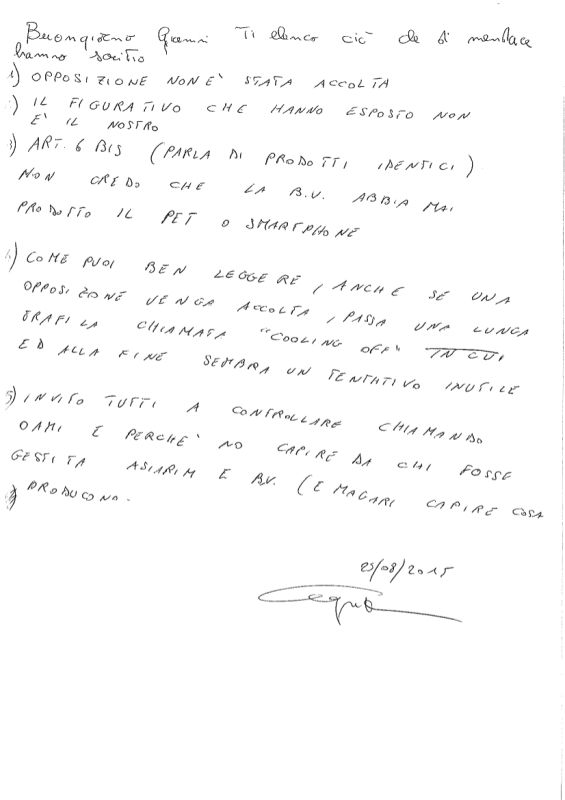 Buongiorno Gianni Ti elenco ciò che di mendace
hanno scritto
1) OPPOSIZIONE NON E' STATA ACCOLTA
2) IL FIGURATIVO CHE HANNO ESPOSTO NON
E' IL NOSTRO
3) ART. 6 BIS (PARLA DI PRODOTTI IDENTICI)
NON CREDO CHE LA B.V. ABBIA MAI
PRODOTTO IL PET O SMARTPHONE
4) COME PUOI BEN LEGGERE, ANCHE SE UNA
OPPOSIZIONE VENGA ACCOLTA, PASSA UNA LUNGA
TRAFILA CHIAMATA "COOLING OFF" IN CUI
ED ALLA FINE SEMBRA UN TENTATIVO INUTILE
5) INVITO TUTTI A CONTROLLARE CHIAMANDO
OAMI E PERCHE' NO CAPIRE DA CHI FOSSE
GESTITA ASIARIM E B.V. (E MAGARI CAPIRE COSA
PRODUCONO.
25/08/2015